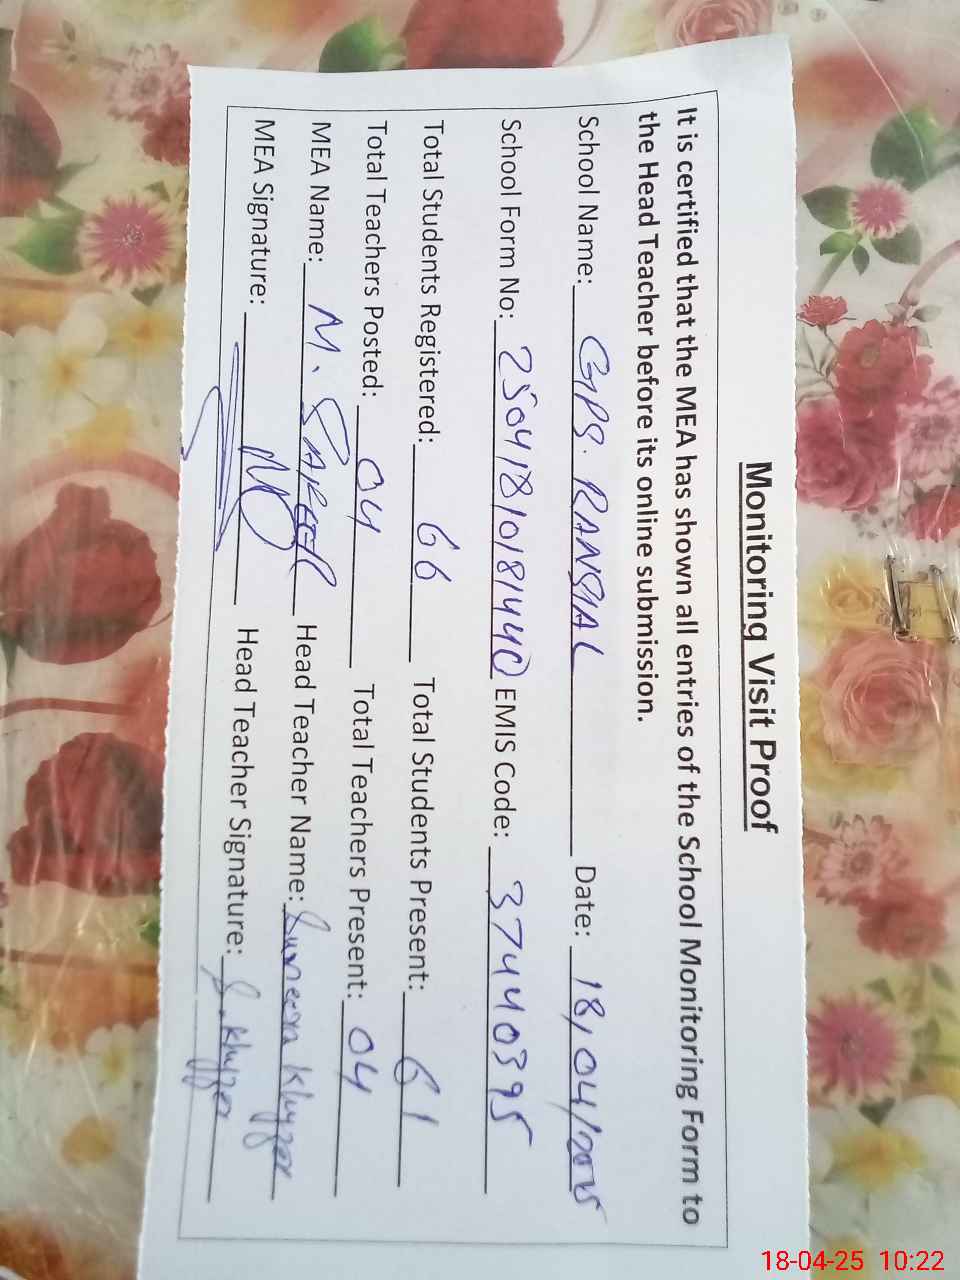 Monitoring Visit Proof
It is certified that the MEA has shown all entries of the School Monitoring Form to
the Head Teacher before its online submission.
School Name: GPS. RANSIAL Date: 18/04/2025
School Form No: EMIS Code: 37440395
Total Students Registered: 66 Total Students Present: 61
Total Teachers Posted: 04 Total Teachers Present: 04
MEA Name: M. Head Teacher Name: Khyzer
MEA Signature: Head Teacher Signature: S. Khyzer
18-04-25 10:22